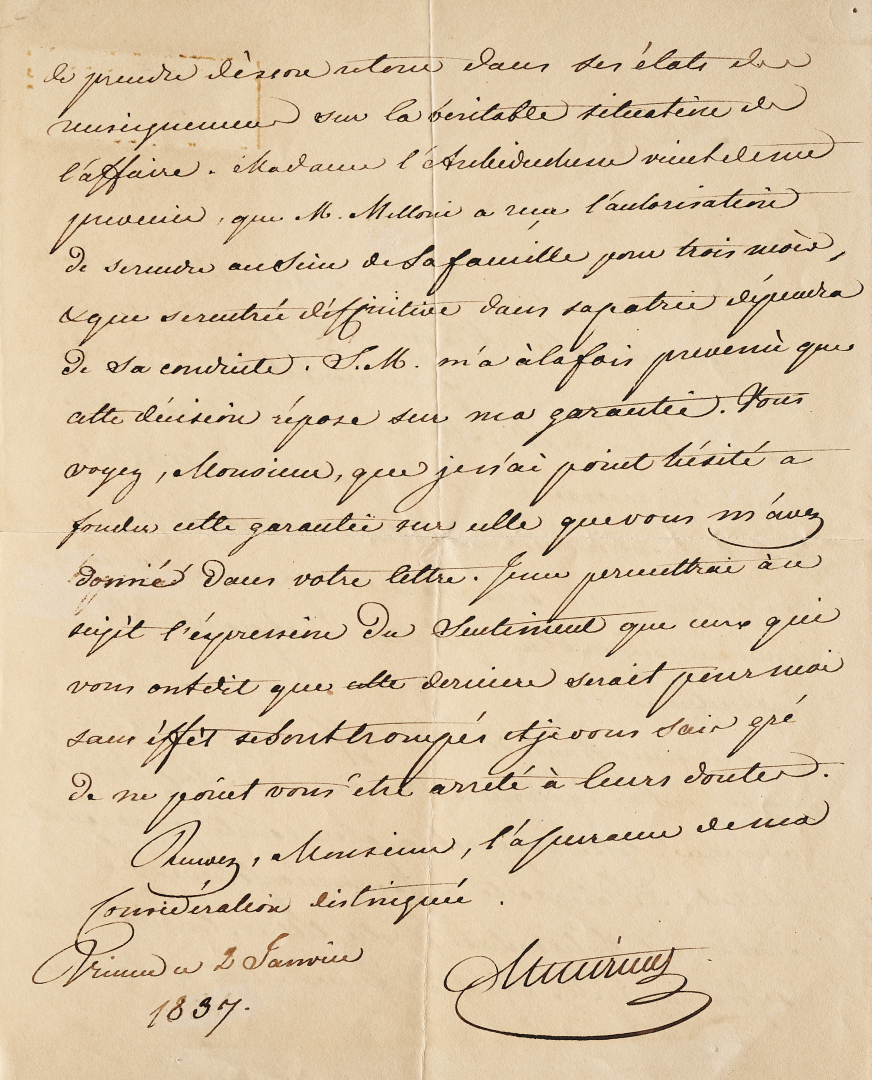 de prendre dès son retour dans ses états des
renseignemens sur la véritable situation de
l'affaire. Madame l'Archiduchesse vient de me
prevenir, que M. Melloni a reçu l'autorisation
de se rendre au sein de sa famille pour trois mois,
& que sa rentrée définitive dans sa patrie dépendra
de sa conduite. S. M. m'a à la fois prevenu que
cette décision répose sur ma garantie. Vous
voyez, Monsieur, que je n'ai point hésité a
fonder cette garantie sur celle que vous m'avez
donnée dans votre lettre. Je me permettrai à ce
sujèt l'éxpression du sentiment que ceux qui
vous ont dit que cette derniere serait pour moi
sans éffèt se sont trompés et je vous sais gré
de ne point vous être arrété à leurs doutes.
Recevez, Monsieur, l'assurance de ma
Considération distinguée.
Vienne ce 2 Janvier
1837.
Metternich